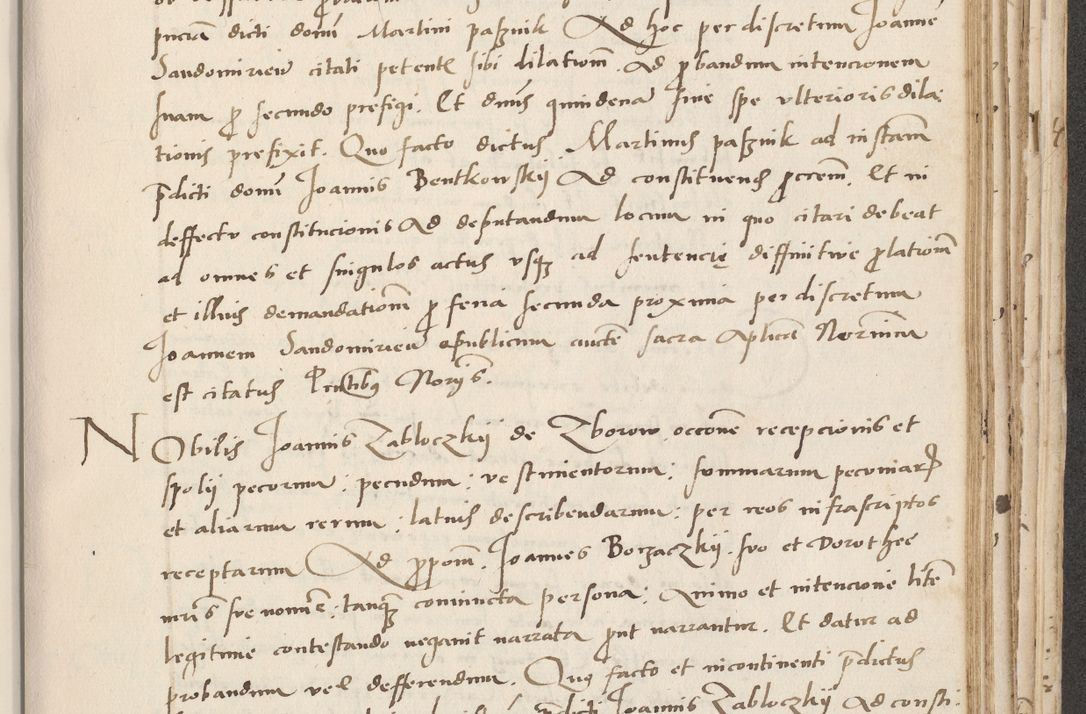 pncia dicti domi Martini paßnik Ad hoc per discretum Joanne
Sandomiriew citati petente sibi dilationem Ad probandum intencionem
suam p secundo prefigi. Et dnus quindena sine spe ulterioris dila:
tionis prefixit. Quo facto dictus Martinus paßnik ad instam
pdicti domi Joannis Bentkowskij Ad constituend procrem. Et in
deffectu constitucionis Ad deputandum locum in quo citari debeat
ad omnes et singulos actus usqz ad sentencię diffinitiue plationem
et illius demandationem p feria secunda proxima per discretum
Joannem Sandomiriew publicum aucte sacra Aplica Notorium
est citatus Pntibus Norijs.
NObilis Joannis Zabloczkij de Zborow occone recepcionis et
spolij pecorum : pecudum : vestimentorum : summarum pecuniarz
et aliarum rerum : latius describendarum : per reos infrascriptos
receptarum Ad ppom. Joannes Borzaczkij. suo et Dorothee
uxoris sue nomine : tanqz coniuncta persona : Animo et intencione litem
legitime contestando negauit narrata put narrantur. Et datur ad
probandum vel defferendum. Quo facto et incontinenti pdictus
pdicti Joannis Zabloczkij Ad consti: